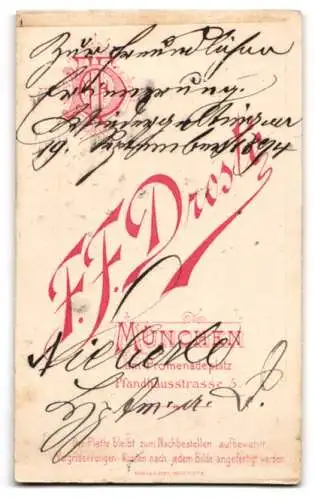 Zur freundlichen
Erinnerung.
19. September 1894
F. F. Droste
MÜNCHEN
am Promenadeplatz
Pfandhausstrasse 5.
Hptm. a. D.
Die Platte bleibt zum Nachbestellen aufbewahrt
Vergrösserungen können nach jedem Bilde angefertigt werden